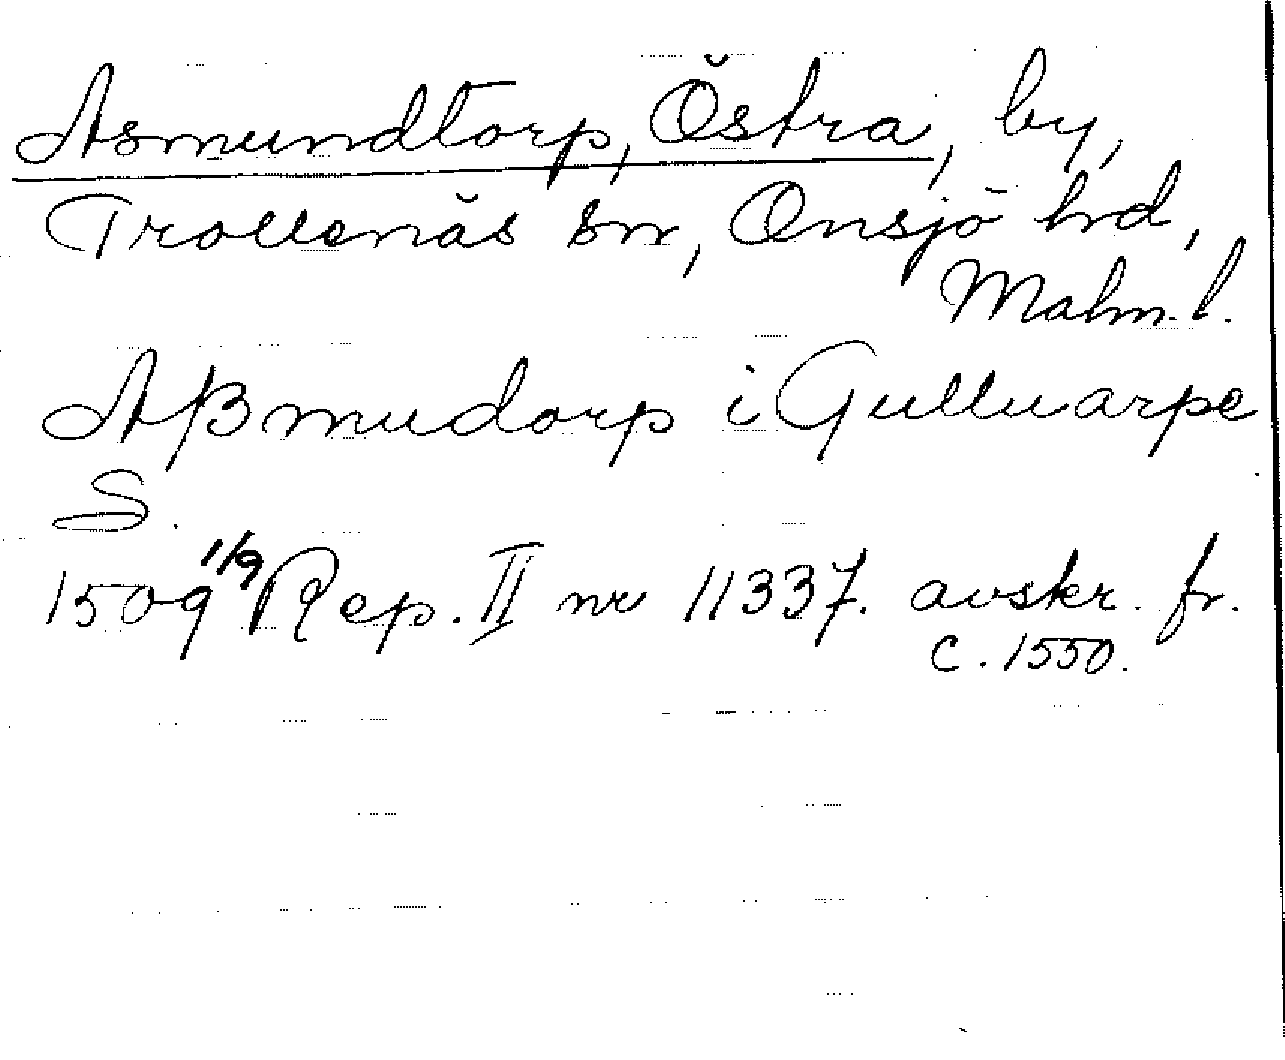 Asmundtorp, Östra, by,
Trollenäs sn, Onsjö hrd,
Malm. l.
Aßmudorp i Gulluarpe
S.
1509 1/9 Rep. II nr 11337. avskr. fr.
c. 1550.